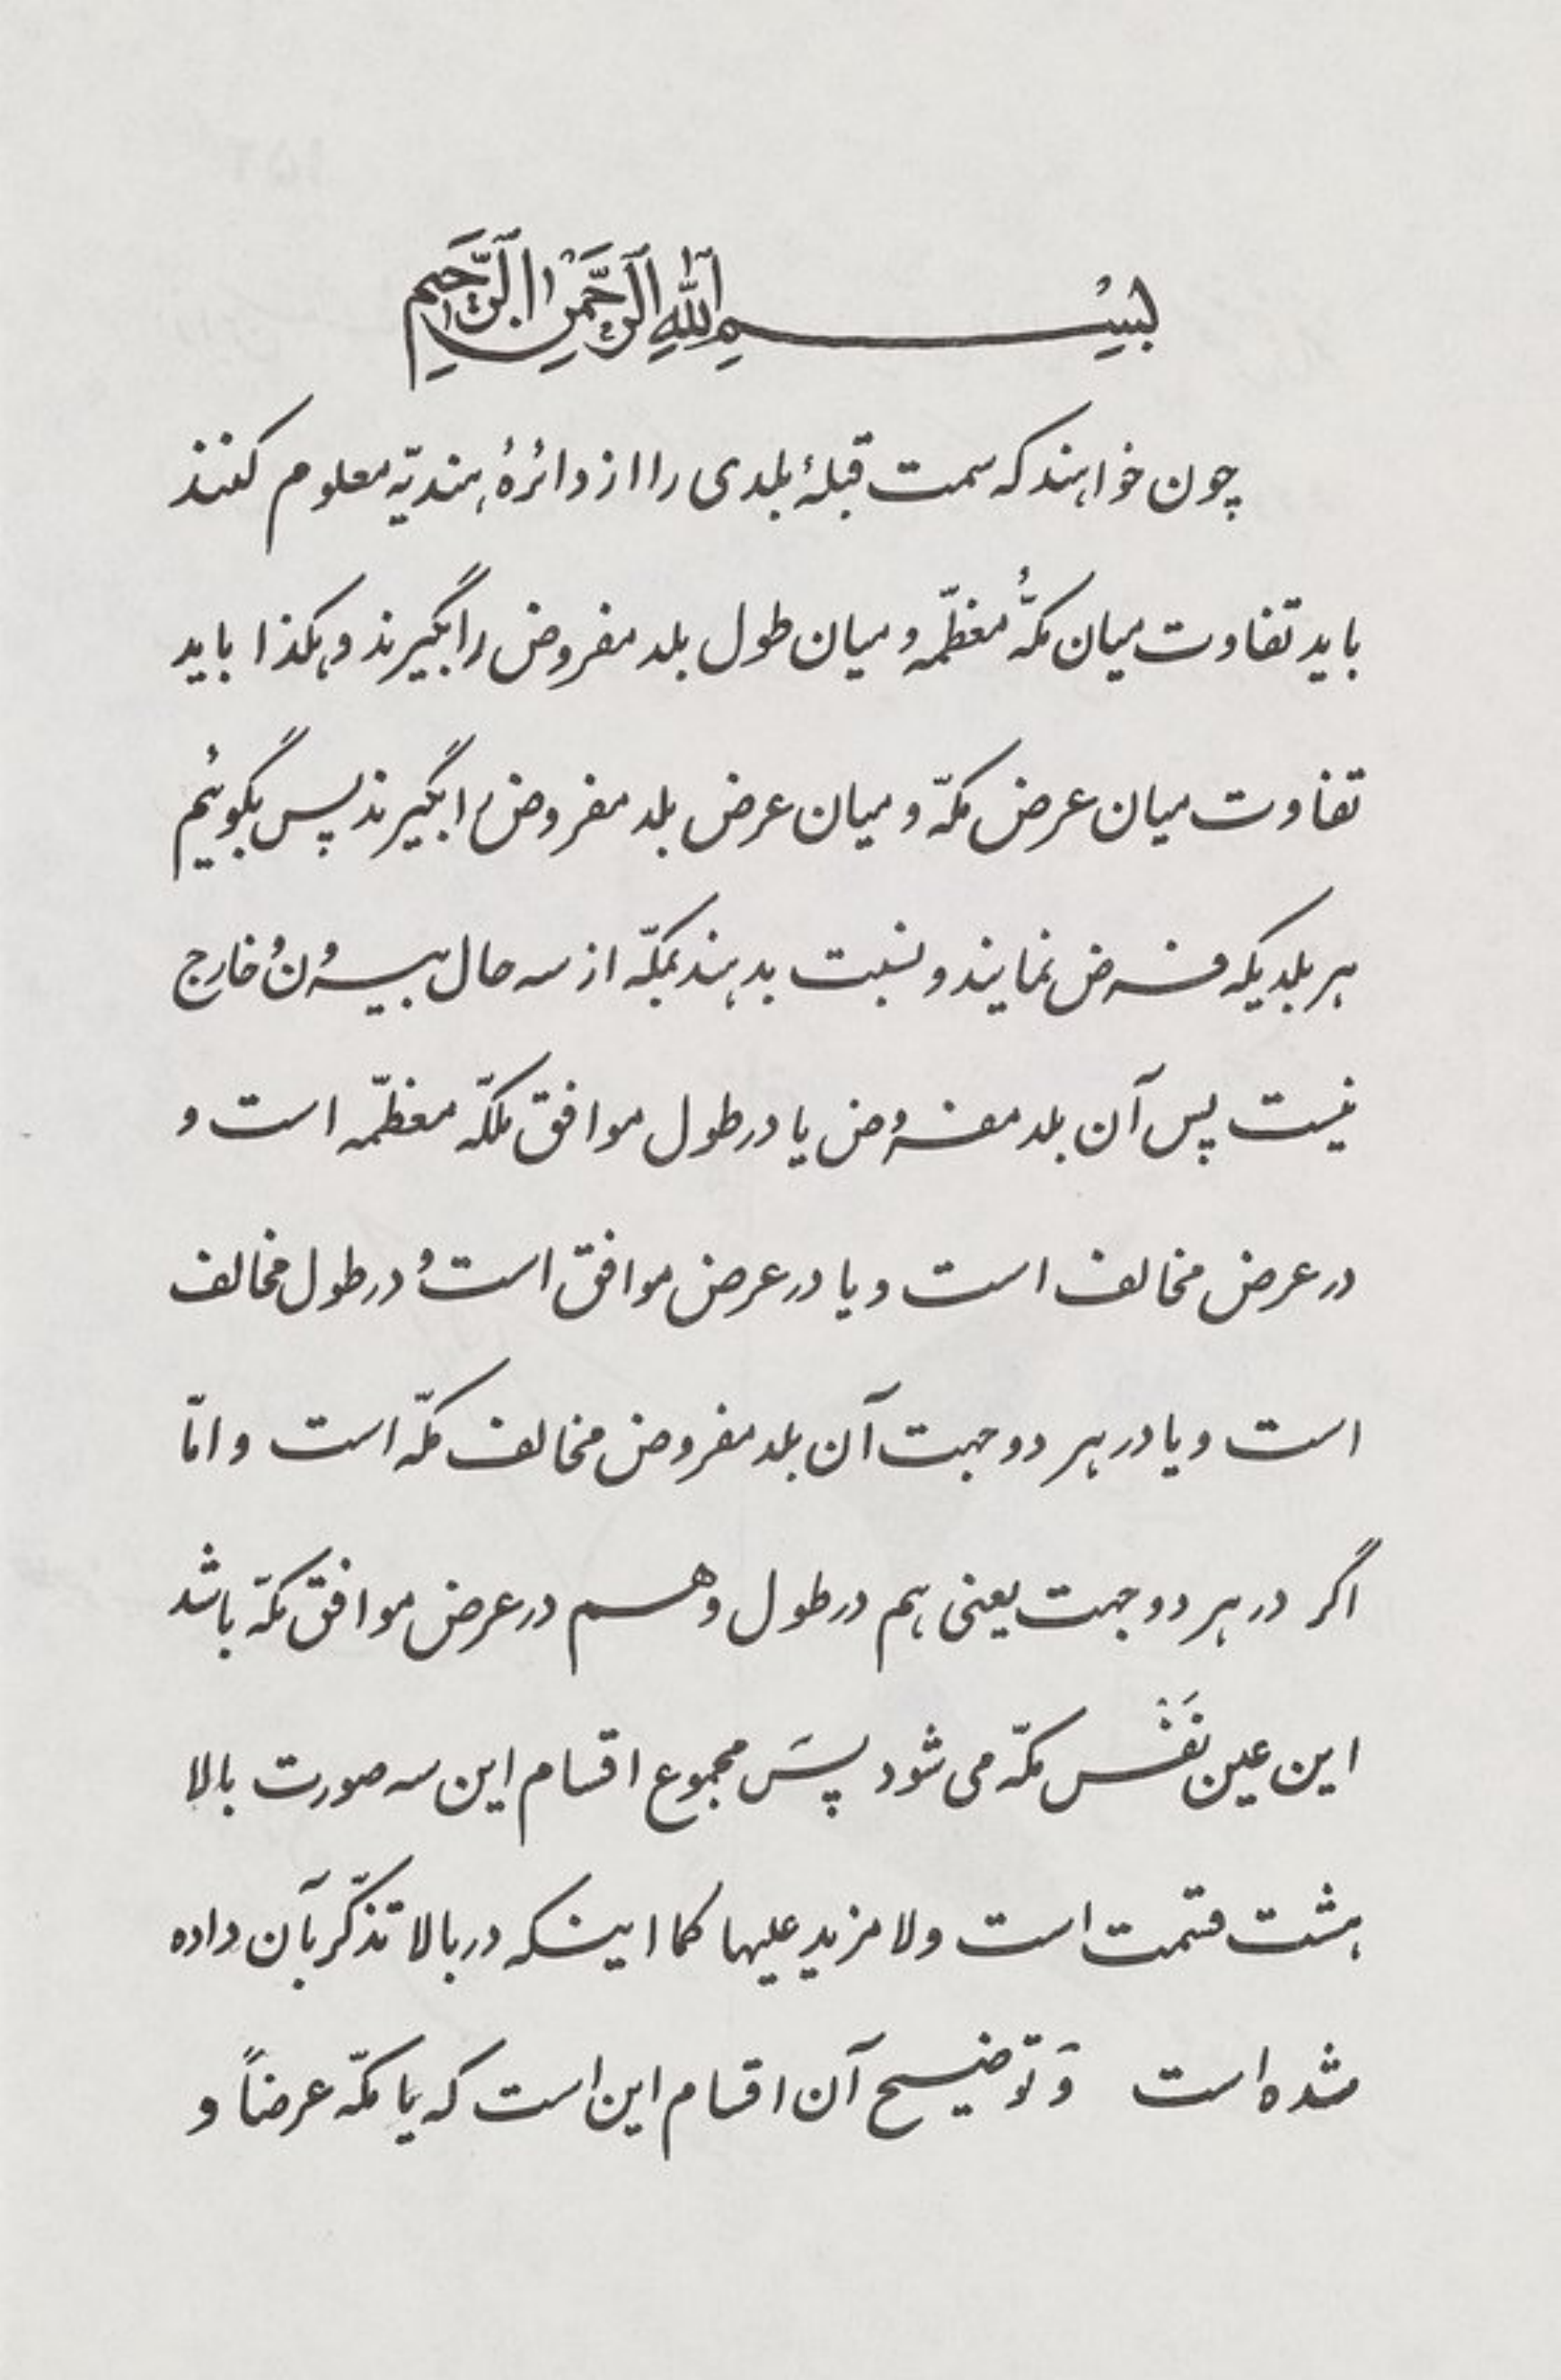 بِسْمِ اللهِ الرَّحْمنِ الرَّحیمِ
چون خواهند که سمت قبلهٔ بلدی را از دائرهٔ هندیّه معلوم کنند
باید تفاوت میان مکّهٔ معظّمه و میان طول بلد مفروض را بگیرند و هکذا باید
تفاوت میان عرض مکّه و میان عرض بلد مفروض را بگیرند پس بگوئیم
هر بلدیکه فرض نمایند و نسبت بدهند بمکّه از سه حال بیرون و خارج
نیست پس آن بلد مفروض یا در طول موافق مکّه معظّمه است و
در عرض مخالف است و یا در عرض موافق است و در طول مخالف
است و یا در هر دو جهت آن بلد مفروض مخالف مکّه است و امّا
اگر در هر دو جهت یعنی هم در طول و هم در عرض موافق مکّه باشد
این عین نَفْس مکّه می شود پَس مجموع اقسام این سه صورت بالا
هشت قسمت است ولا مزید علیها کما اینکه در بالا تذکّر بآن داده
شده است وَ توضیح آن اقسام این است که یا مکّه عرضاً و